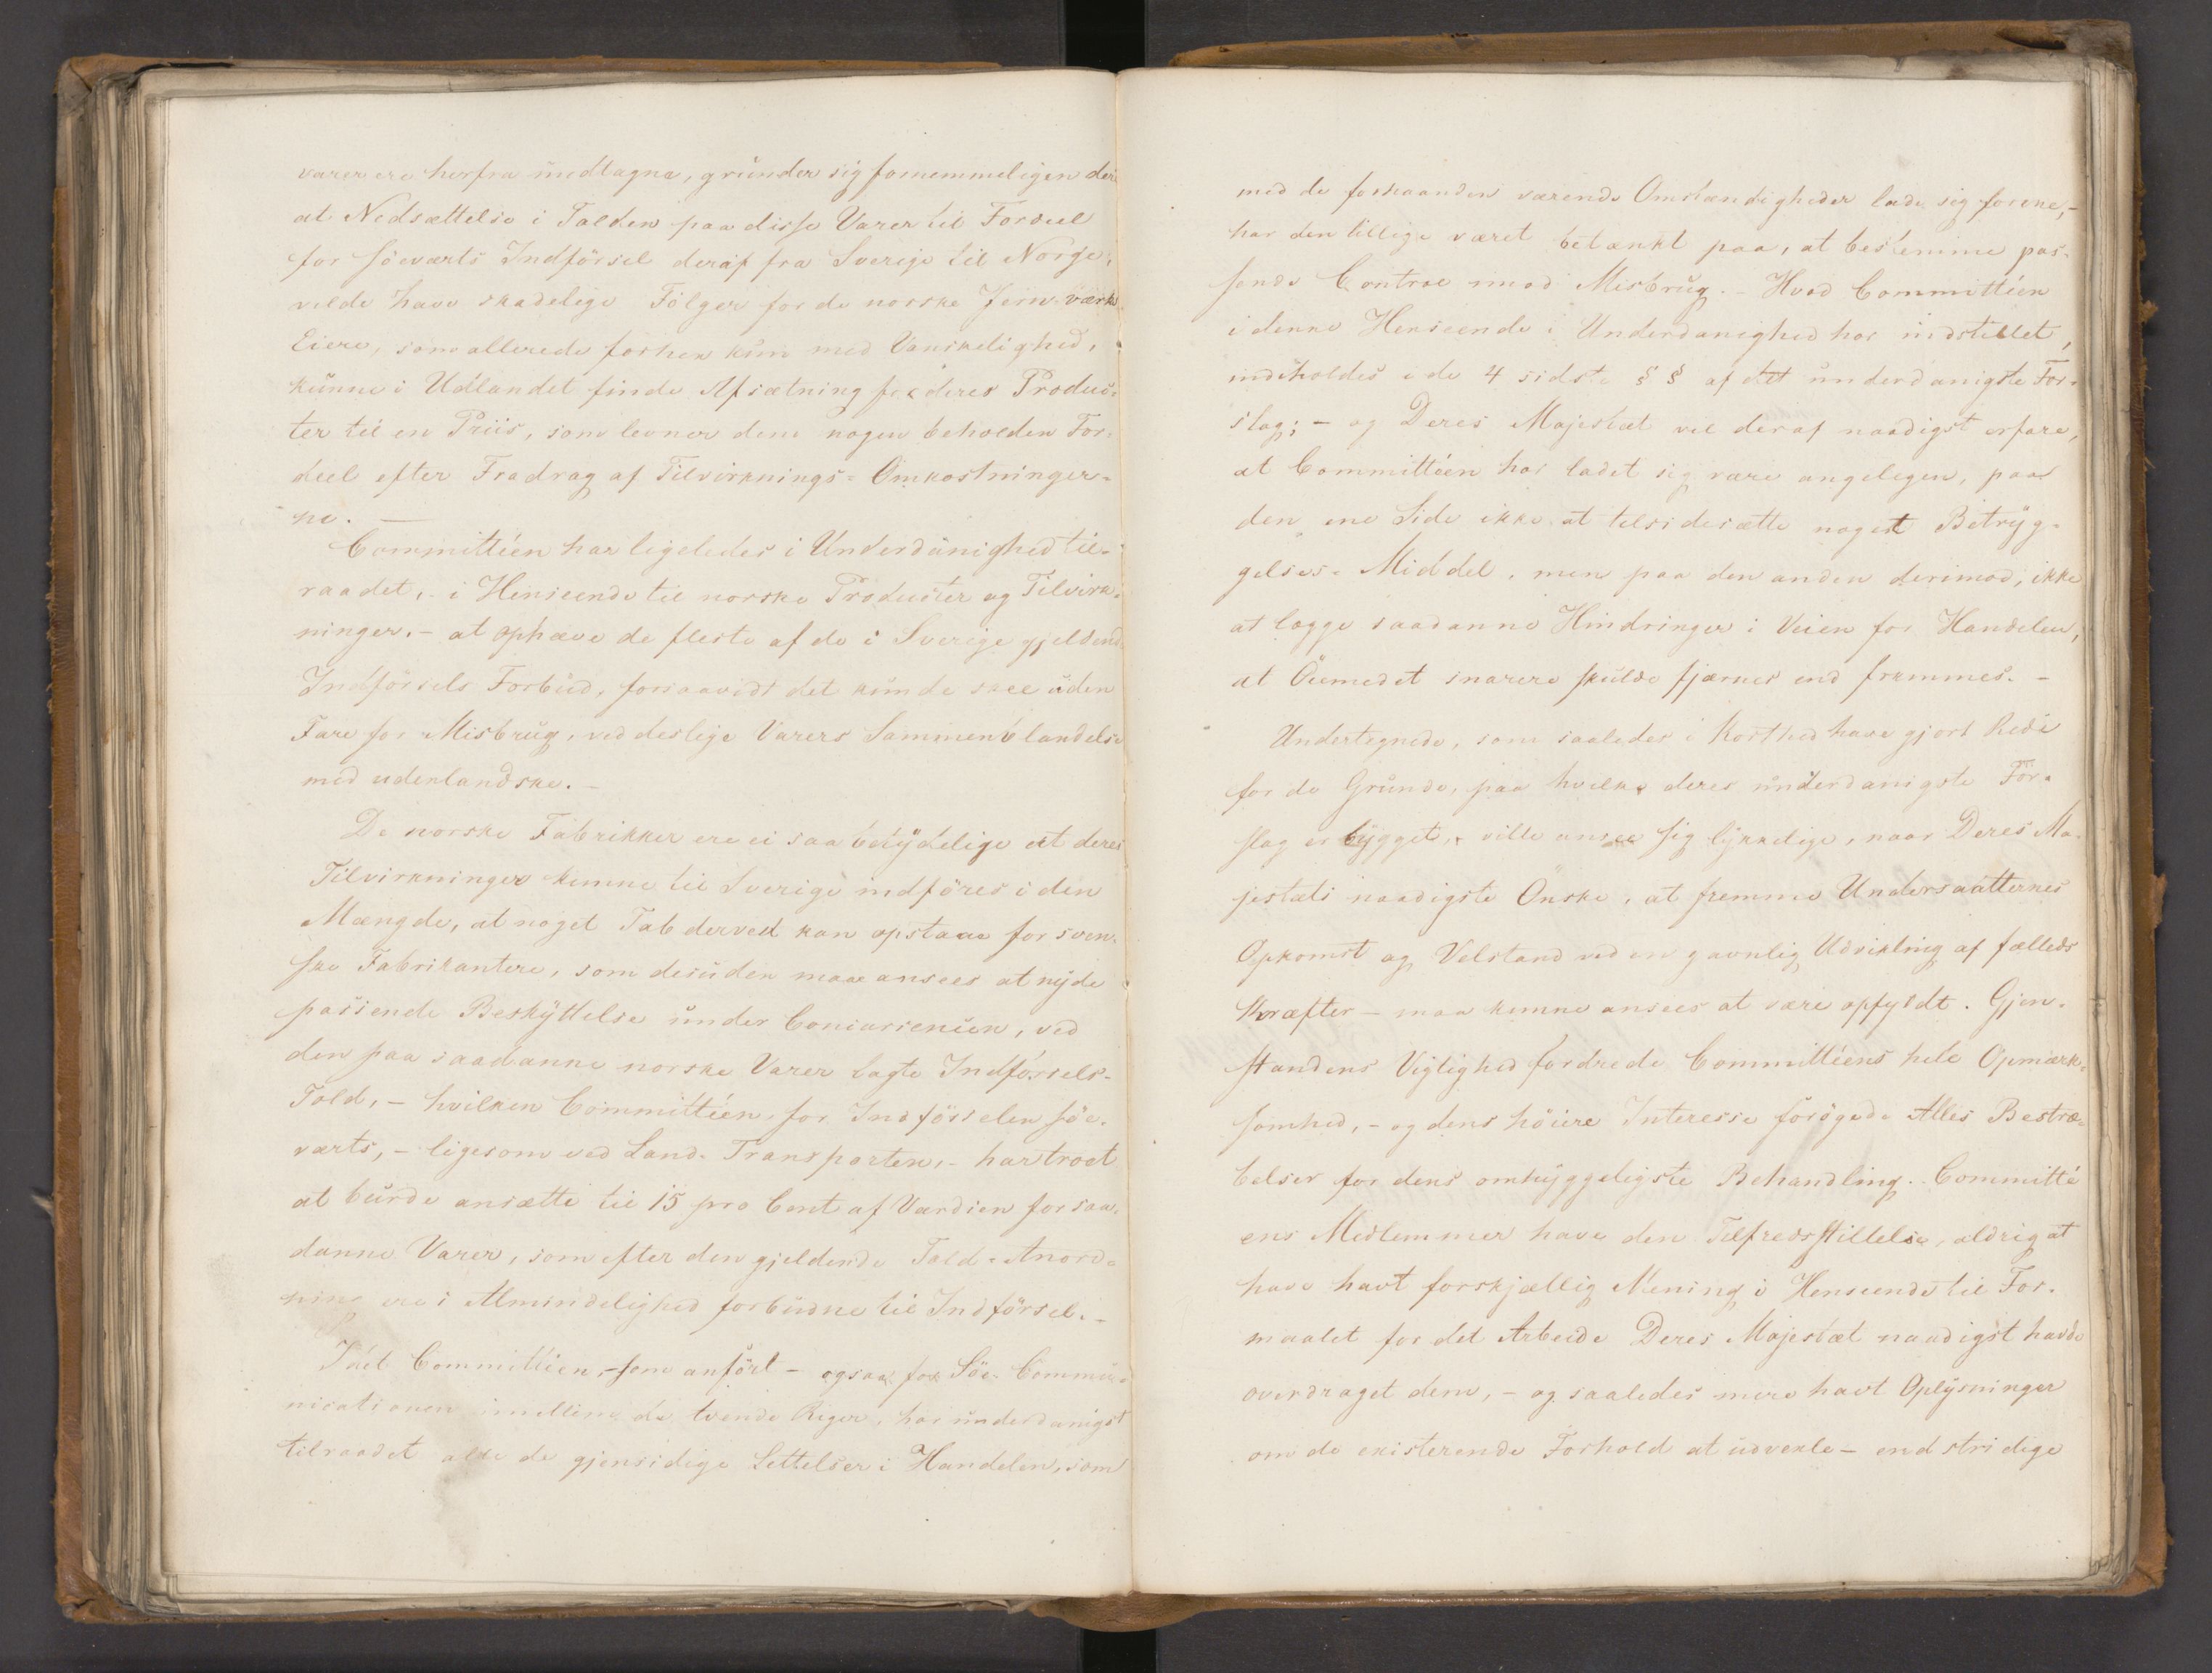 varer ere herfra undtagne, grunder sig fornemmeligen der
at Nedsættelse i Tolden paa disse Varer til Fordeel
for Söeværts Indförsel deraf fra Sverige til Norge,
vilde have skadelige Fölger for de norske Jern-værk
Eiere, som allerede forhen kun med Vanskelighed,
kunne i Udlandet finde Afsætning for deres Produc-
ter til en Priis, som levner dem nogen beholden For-
deel efter Fradrag af Tilvirknings-Omkostninger-
ne. —
Committéen har ligeledes i Underdanighed til-
raadet, - i Henseende til norske Producter og Tilvirk-
ninger, - at ophæve de fleste af de i Sverige gjeldend
Indförsels Forbud, forsaavidt det kunde skee uden
Fare for Misbrug, ved deslige Varers Sammenblandelse
med udenlandske. -
De norske Fabrikker ere ei saa betydelige at deres
Tilvirkninger kunne til Sverige indföres i den
Mængde, at noget Tab derved kan opstaae for sven-
ske Fabrikantere, som desuden maae ansees at nyde
passende Beskyttelse under Concurrencen, ved
den paa saadanne norske Varer lagte Indförsels-
Told, - hvilken Committéen, for Indförselen söe-
værts, - ligesom ved Land-Transporten, - har troet
at burde ansætte til 15 pro Cent af Værdien for saa-
danne Varer, som efter den gjeldende Told-Anord-
ning ere i Almindelighed forbudne til Indförsel. -
Idet Committéen, - som anfört - ogsaa for Söe-Commu-
nicationen imellem de tvende Riger, har underdanigst
tilraadet alle de gjensidige Lettelser i Handelen, som
med de forhaanden værende Omstændigheder lade sig forene, -
har den tillige været betænkt paa, at bestemme pas-
sende Controe imod Misbrug. - Hvad Committéen
i denne Henseende i Underdanighed har indstillet,
indeholdes i de 4 sidste § § af det underdanigste For-
slag; - og Deres Majestæt vil deraf naadigst erfare,
at Committéen har ladet sig være angelegen, paa
den ene Side ikke at tilsidesætte noget Betryg-
gelses-Middel, men paa den anden derimod, ikke
at lægge saadanne Hindringer i Veien for Handelen,
at Öiemedet snarere skulde fjærnes end fremmes. -
Undertegnede, som saaledes i Korthed have gjort Rede
for de Grunde, paa hvilke deres underdanigste For-
slag er bygget, ville ansee sig lykkelige, naar Deres Ma-
jestæts naadigste Önske, at fremme Undersaatternes
Opkomst og Velstand ved en gavnlig Udvikling af fælleds
Kræfter - maa kunne ansees at være opfyldt. Gjen-
standens Vigtighed fordrede Committéens hele Opmærk-
somhed, - og dens höiere Interesse forögede Alles Bestræ-
belser for dens omhyggeligste Behandling. Committé-
ens Medlemmer have den Tilfredsstillelse, aldrig at
have havt forskjællig Mening i Henseende til For-
maalet for det Arbeide Deres Majestæt naadigst havde
overdraget dem, - og saaledes mere havt Oplysninger
om de existerende Forhold at udvexle - end stridige